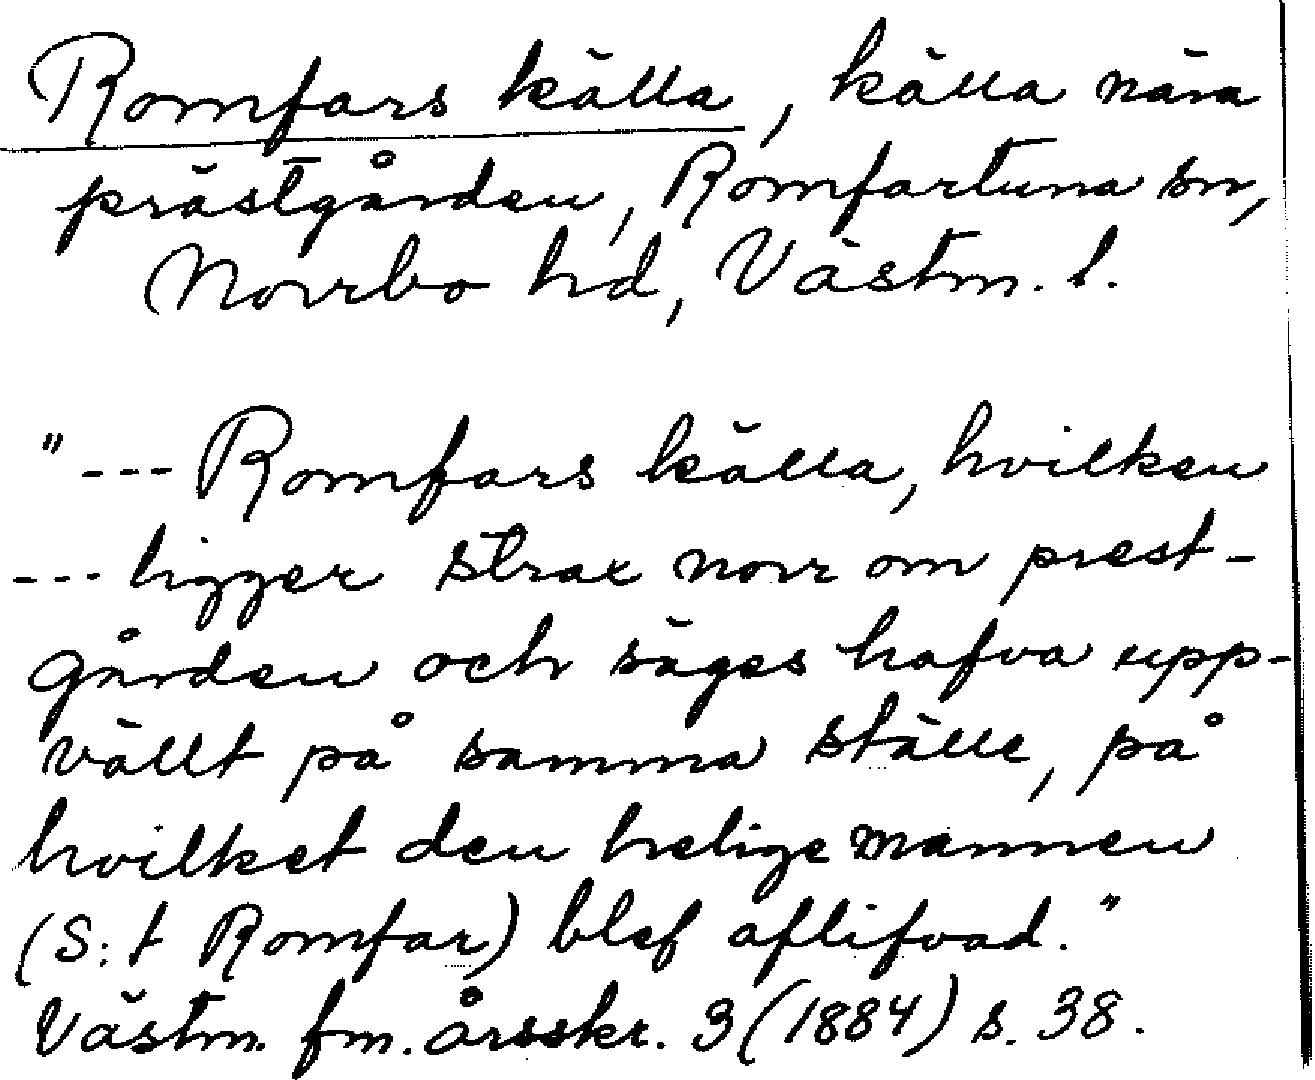 Romfars källa, källa nära
prästgården, Romfartuna sn,
Norrbo hd, Västm. l.
"--- Romfars källa, hvilken
--- ligger strax norr om prest-
gården och säges hafva upp-
vällt på samma ställe, på
hvilket den helige mannen
(S:t Romfar) blef aflifvad."
Västm. fm. årsskr. 3 (1884) s. 38.